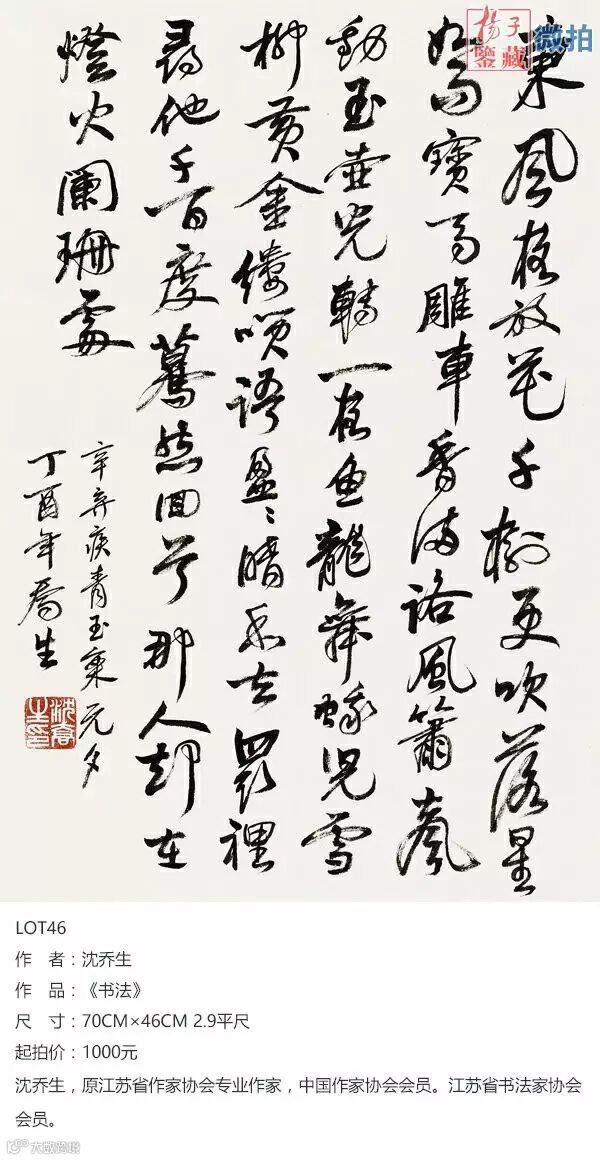 揚子
鑒藏
微拍
東風夜放花千樹更吹落星
如雨寶馬雕車香滿路風簫聲
動玉壺光轉一夜魚龍舞蛾兒雪
柳黃金縷笑語盈〻暗香去眾裡
尋他千百度驀然回首那人却在
燈火闌珊處
辛弃疾青玉案元夕
丁酉年喬生
沈喬生印
LOT46
作 者：沈乔生
作 品：《书法》
尺 寸：70CM×46CM 2.9平尺
起拍价：1000元
沈乔生，原江苏省作家协会专业作家，中国作家协会会员。江苏省书法家协会
会员。
大数跨境